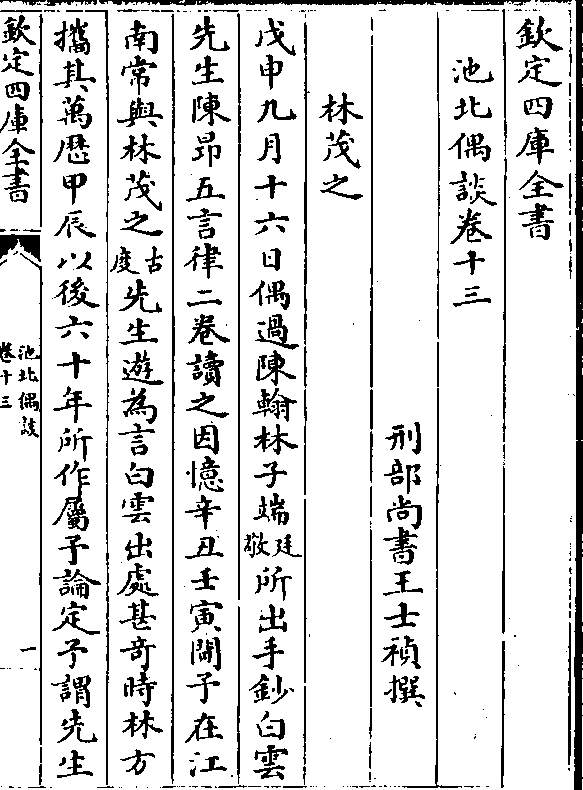 欽定四庫全書
池北偶談卷十三
刑部尚書王士禎撰
林茂之
戊申九月十六日偶過陳翰林子端廷敬所出手鈔白雲
先生陳昂五言律二卷讀之因憶辛丑壬寅間予在江
南常與林茂之古度先生遊為言白雲出處甚奇時林方
攜其萬歴甲辰以後六十年所作屬予論定予謂先生
欽定四庫全書
池北偶談
卷十三
一